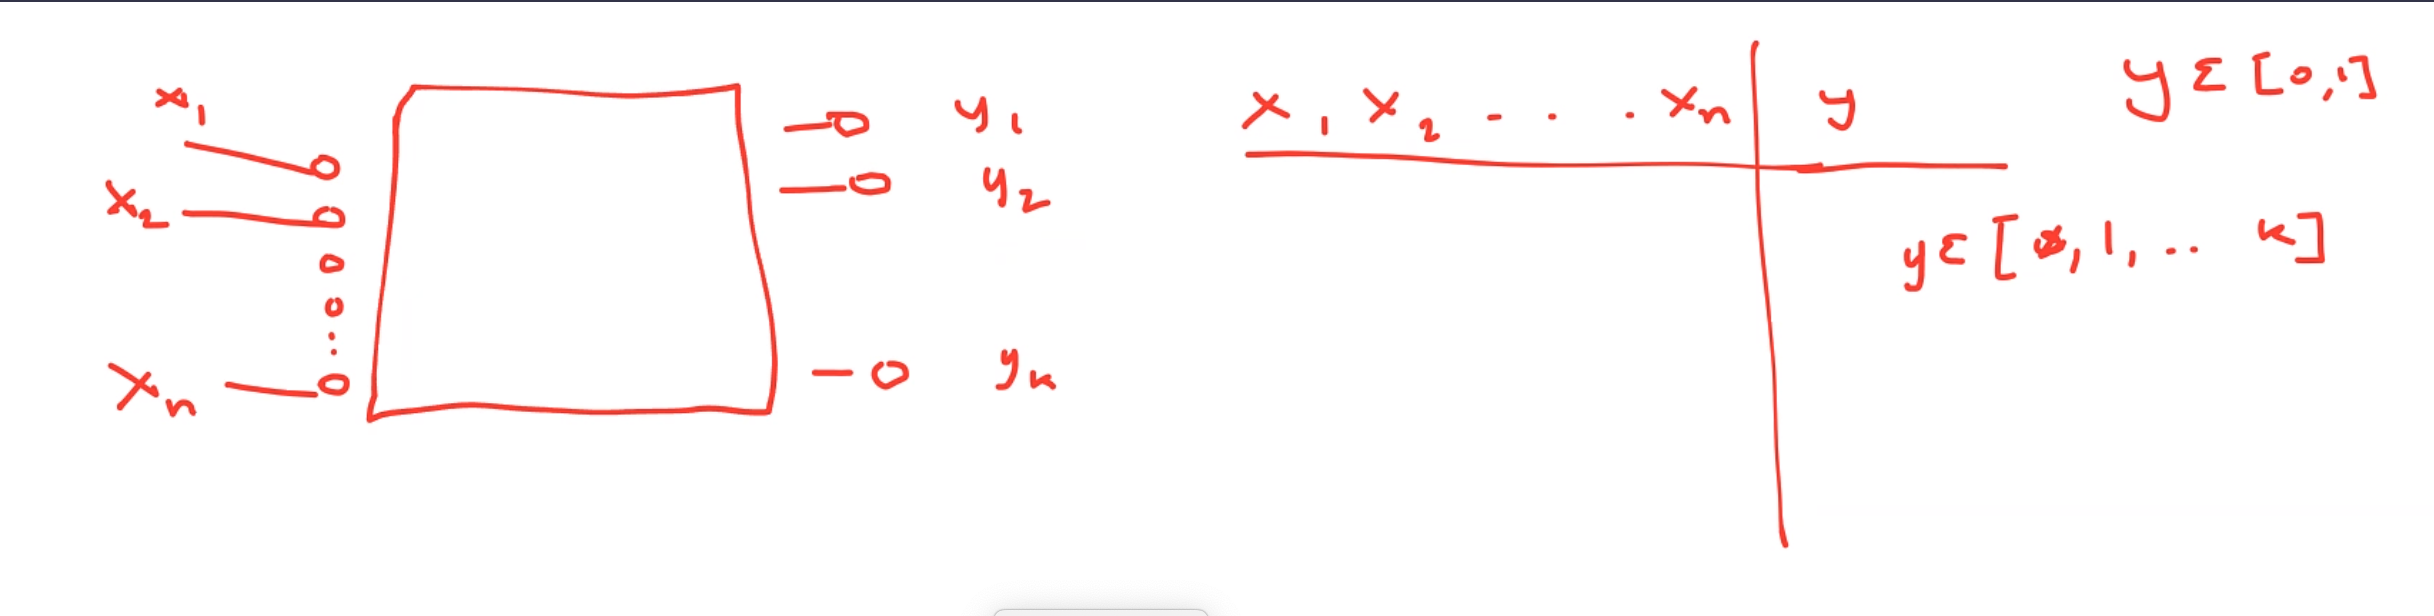 x₁
x₂
xₙ
y₁
y₂
yₖ
x₁ x₂ - . . xₙ | y
y ε [0,1]
y ε [0,1,.. k]